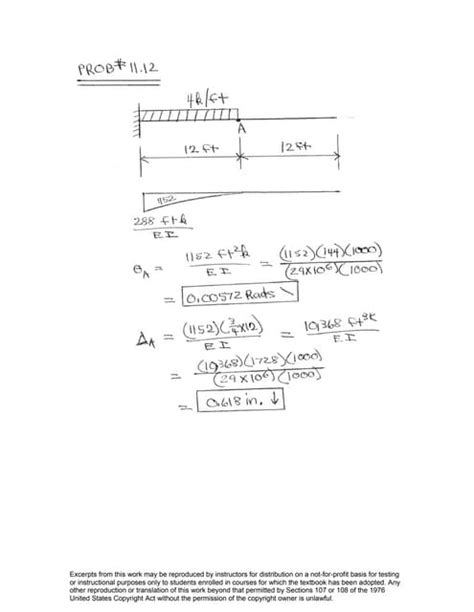 PROB# 11.12
4k/ft
A
12 ft 12 ft
1152
288 ft·k
EI
θA = 1152 ft²k / EI = (1152)(144)(1000) / (29×10⁶)(1000)
= 0.00572 Rads
ΔA = (1152)(3/4×12) / EI = 10,368 ft³k / EI
= (10,368)(1728)(1000) / (29×10⁶)(1000)
= 0.618 in. ↓
Excerpts from this work may be reproduced by instructors for distribution on a not-for-profit basis for testing
or instructional purposes only to students enrolled in courses for which the textbook has been adopted. Any
other reproduction or translation of this work beyond that permitted by Sections 107 or 108 of the 1976
United States Copyright Act without the permission of the copyright owner is unlawful.